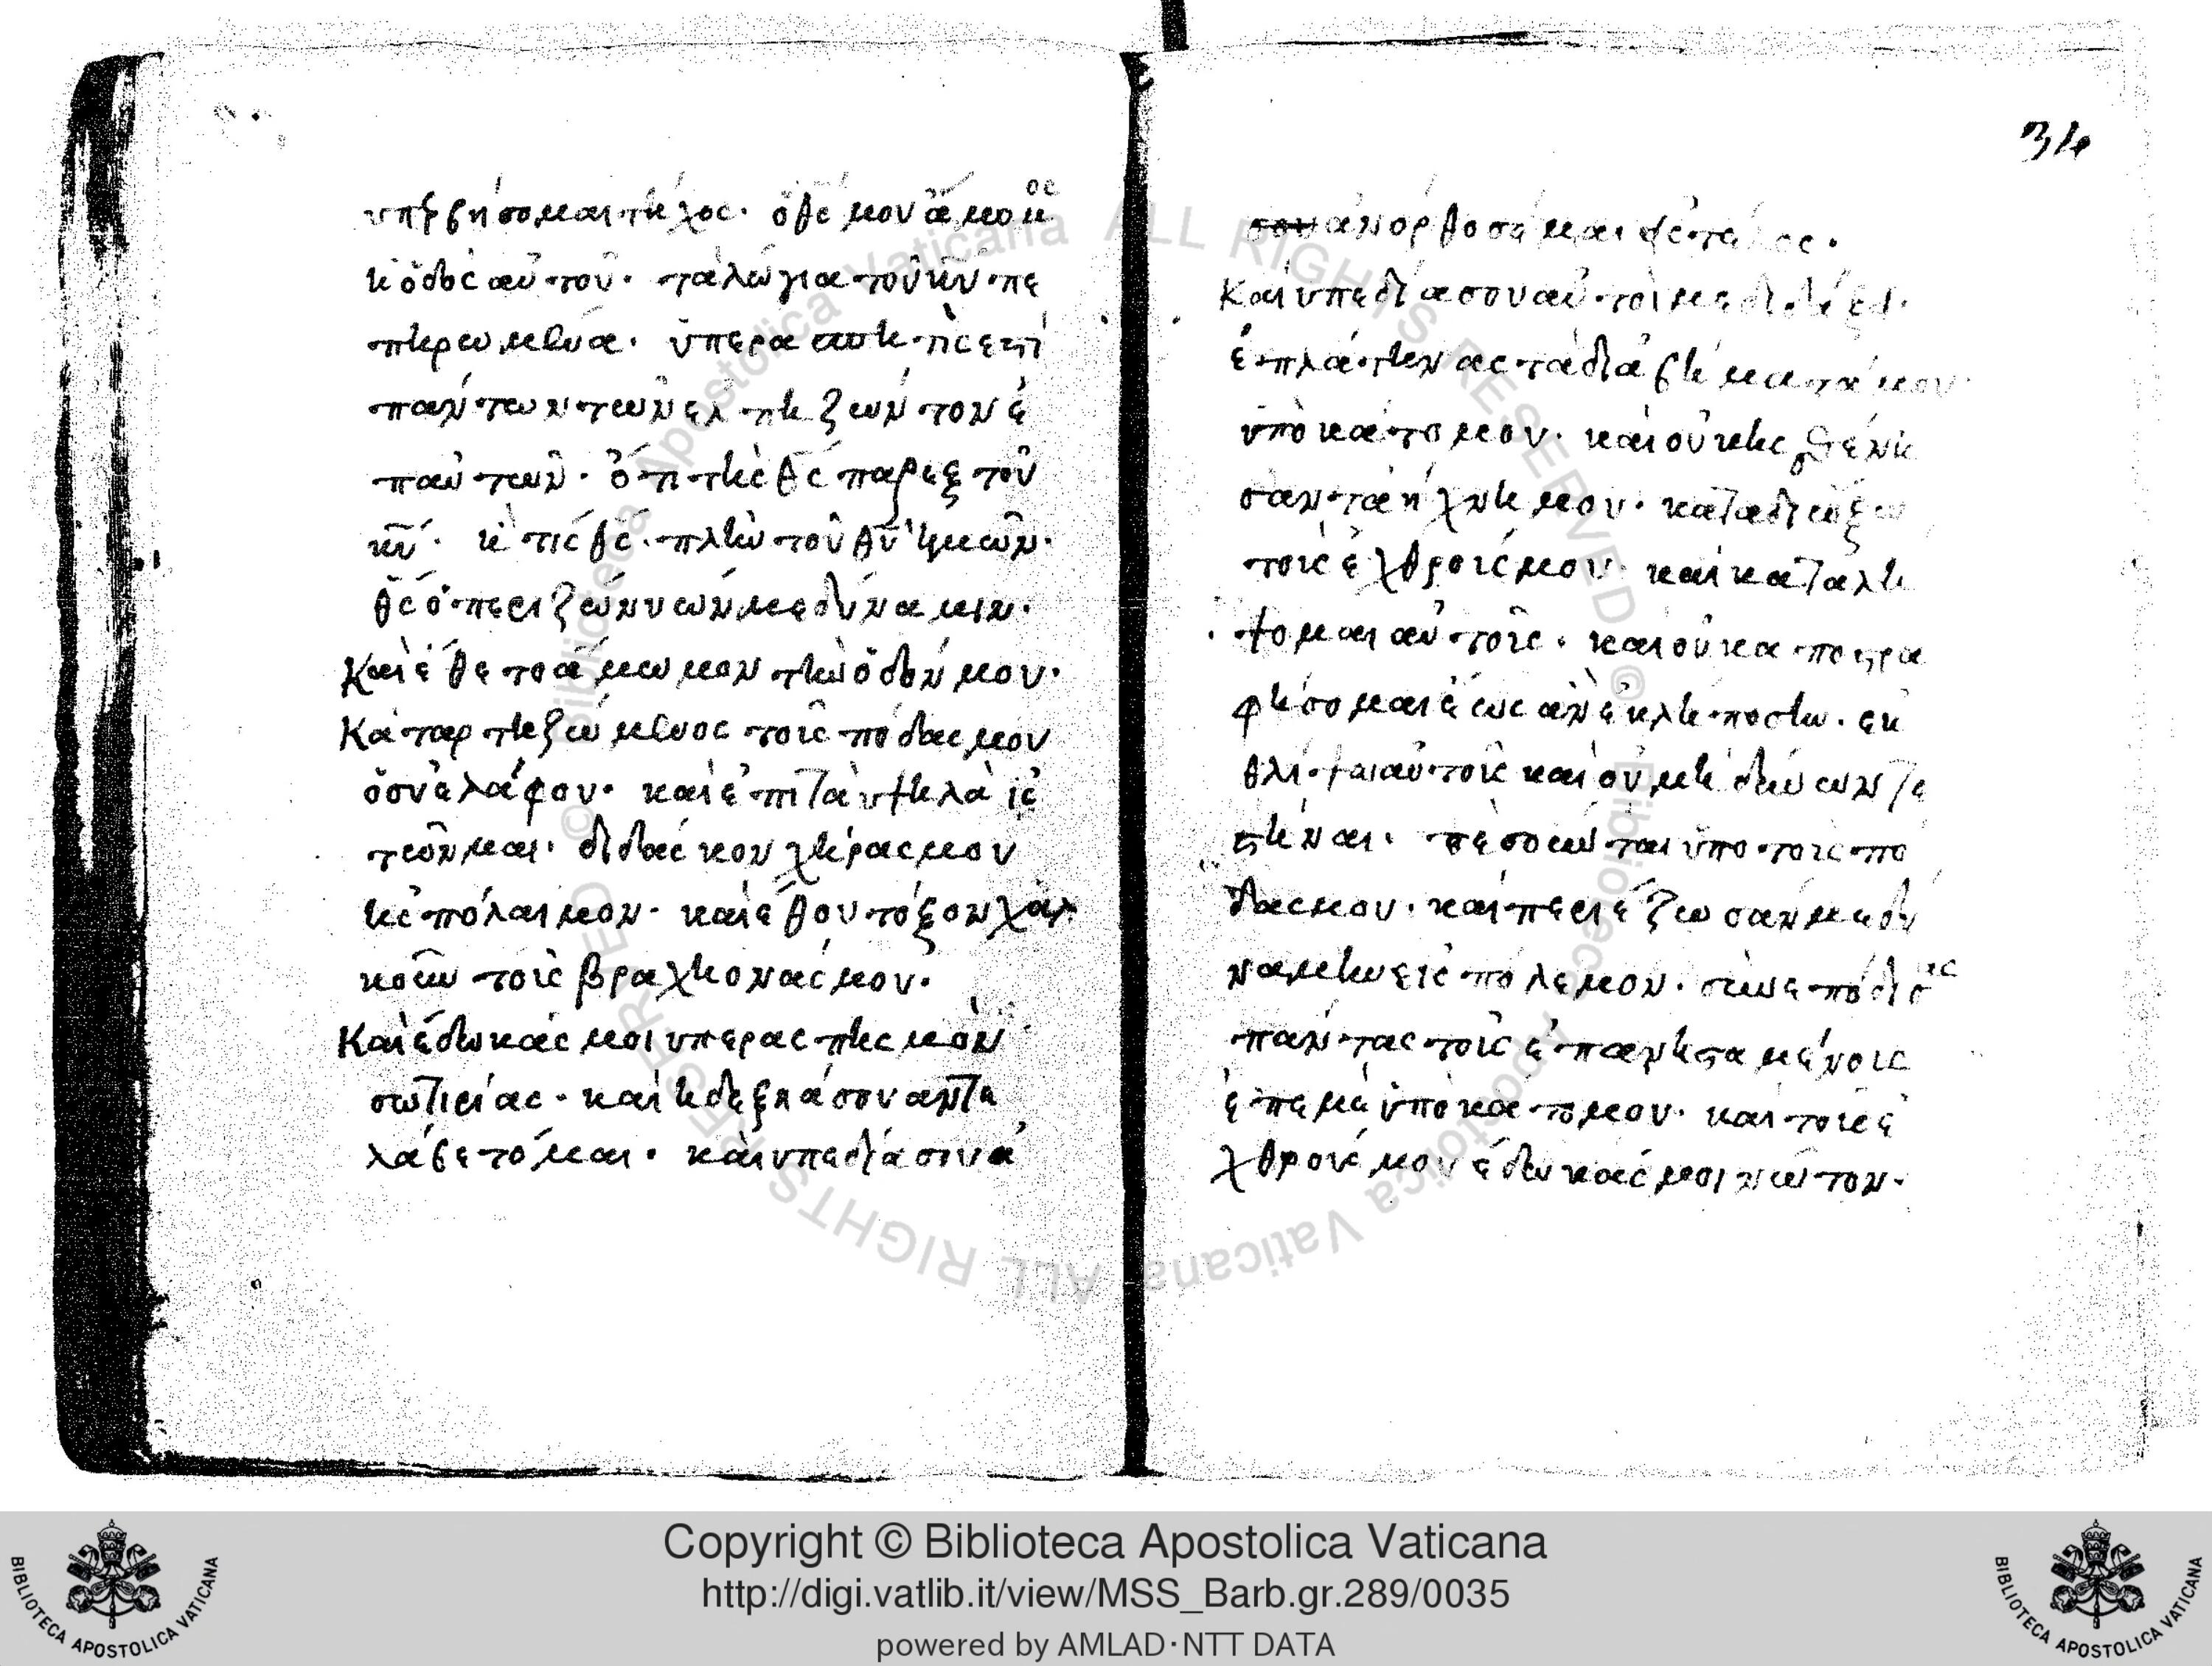 υπερβήσομαι τῆχος. ὁ θς μου ἄμομος
ἡ ὁδὸς αὐτοῦ. τὰ λώγια τοῦ κυ πε
πηρωμένα. ὑπερασπητὶς ἐστὶ
πάντων τῶν ἐλπηζών τον ἐ
παὐτων. ὅτι τὴς θς παρεξ τοῦ
κυ. κ τις θς. πλὴν τοῦ θυ ἡμῶν.
θς ὁ περιζώννων με δύναμιν.
Καὶ ἔθετο ἄμωμον τὴν ὁδόν μου.
Καταρτηζώμενος τοὶς πόδας μου
ὁσυ ἐλάφου. καὶ ἐπιτὰ υψηλὰ ἱσ
τῶν μαι. διδάσκον χήρας μου
ης πόλαιμον. καὶ ἔθου τόξον χαλ
κοῦν τοὶς βραχήονάς μου.
Καὶ ἔδωκάς μοι υπερασπησμὸν
σωτιρίας. καὶ ἡ δεξηά σου αντε
λάβετό μαι. καὶ υπεδία σινά
σου ἀνορθοσέ μαι ης τέλος.
Καὶ υπεδία σου αὐτοί με διδάξει.
ἐπλάτηνας τὰ διαβήματά μου
ὑπὸ κάτο μου. καὶ οὐκ ησθένη
σαν τὰ ήχνη μου. καταδιώξω
τοὶς ἐχθροίς μου. και καταλη
ψομαι αὐτοῖς. και οὐκ αποστρα
φήσομαι έως ἂν ἐκλήποσην. εκ
θλίψαι αὐτοῖς και ου μὴ δύνωντε
στήναι. πεσοῦνται ὑπο τοῖς πο
δας μου. καὶ περιέζωσάν με δύ
ναμην εἰς πόλεμον. συνεπόδισας
πάντας τοὶς ἐπανησταμένοις
ἐπεμέ ὑπὸ κάτο μου. και τοις ἐ
χθρούς μου έδωκάς μοι νῶτον.
34
Copyright © Biblioteca Apostolica Vaticana
http://digi.vatlib.it/view/MSS_Barb.gr.289/0035
powered by AMLAD·NTT DATA